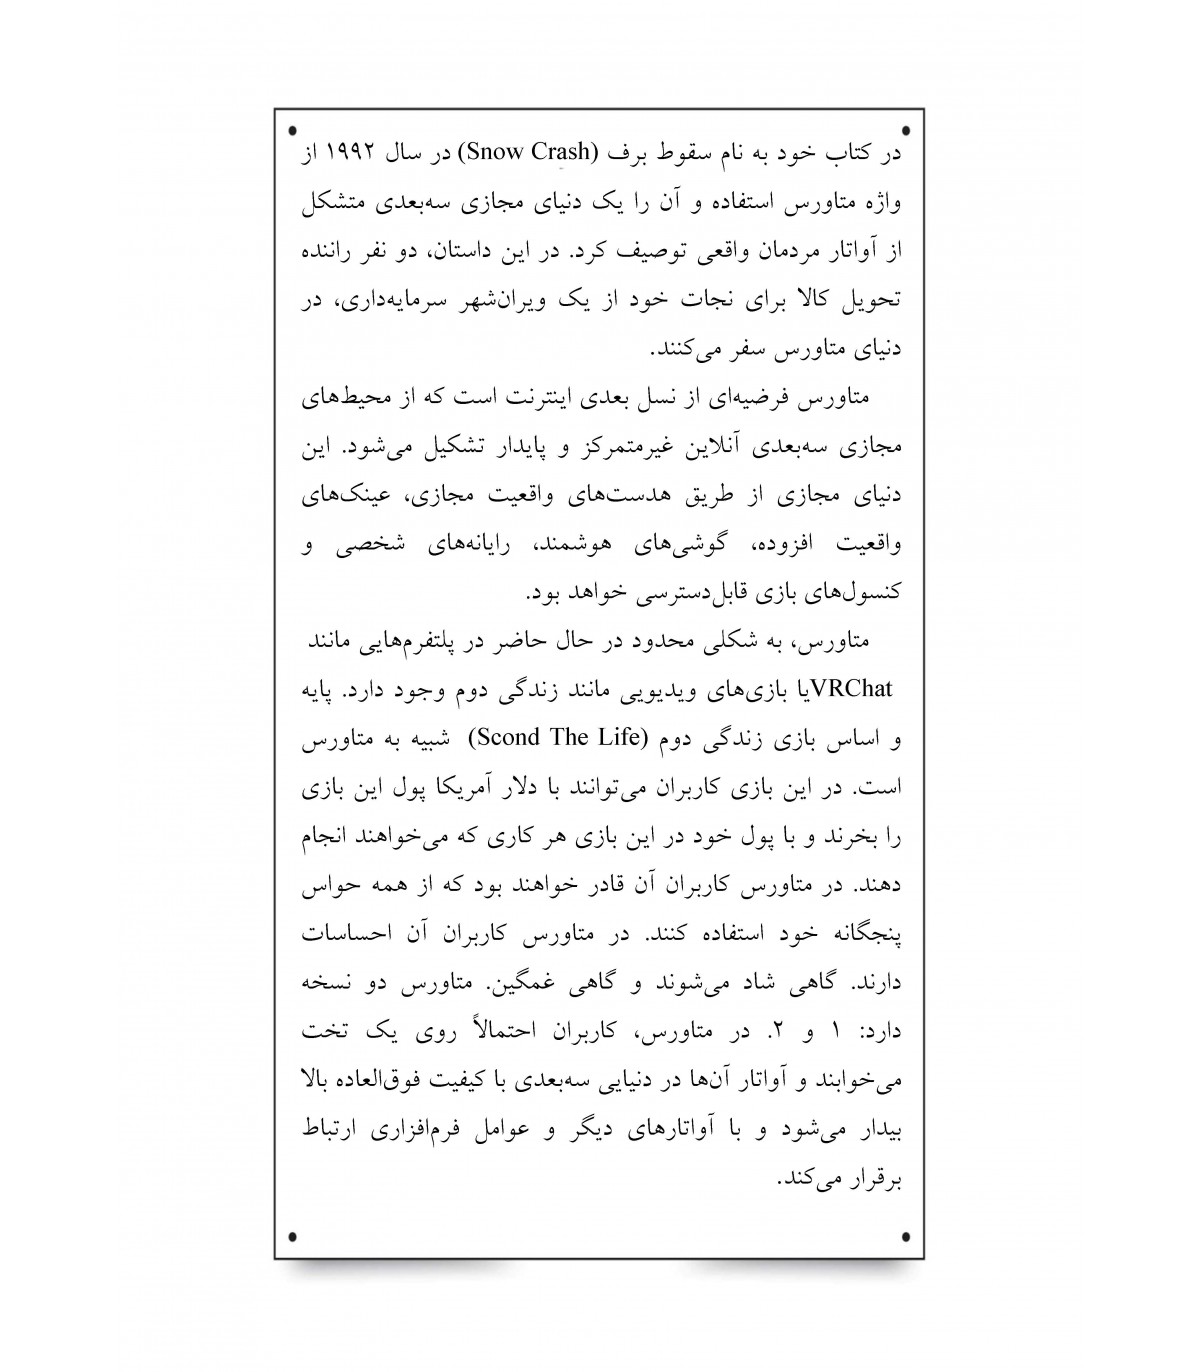 در کتاب خود به نام سقوط برف (Snow Crash) در سال ۱۹۹۲ از
واژه متاورس استفاده و آن را یک دنیای مجازی سه‌بعدی متشکل
از آواتار مردمان واقعی توصیف کرد. در این داستان، دو نفر راننده
تحویل کالا برای نجات خود از یک ویران‌شهر سرمایه‌داری، در
دنیای متاورس سفر می‌کنند.
متاورس فرضیه‌ای از نسل بعدی اینترنت است که از محیط‌های
مجازی سه‌بعدی آنلاین غیرمتمرکز و پایدار تشکیل می‌شود. این
دنیای مجازی از طریق هدست‌های واقعیت مجازی، عینک‌های
واقعیت افزوده، گوشی‌های هوشمند، رایانه‌های شخصی و
کنسول‌های بازی قابل‌دسترسی خواهد بود.
متاورس، به شکلی محدود در حال حاضر در پلتفرم‌هایی مانند
VRChatیا بازی‌های ویدیویی مانند زندگی دوم وجود دارد. پایه
و اساس بازی زندگی دوم (Scond The Life) شبیه به متاورس
است. در این بازی کاربران می‌توانند با دلار آمریکا پول این بازی
را بخرند و با پول خود در این بازی هر کاری که می‌خواهند انجام
دهند. در متاورس کاربران آن قادر خواهند بود که از همه حواس
پنجگانه خود استفاده کنند. در متاورس کاربران آن احساسات
دارند. گاهی شاد می‌شوند و گاهی غمگین. متاورس دو نسخه
دارد: ۱ و ۲. در متاورس، کاربران احتمالاً روی یک تخت
می‌خوابند و آواتار آن‌ها در دنیایی سه‌بعدی با کیفیت فوق‌العاده بالا
بیدار می‌شود و با آواتارهای دیگر و عوامل فرم‌افزاری ارتباط
برقرار می‌کند.